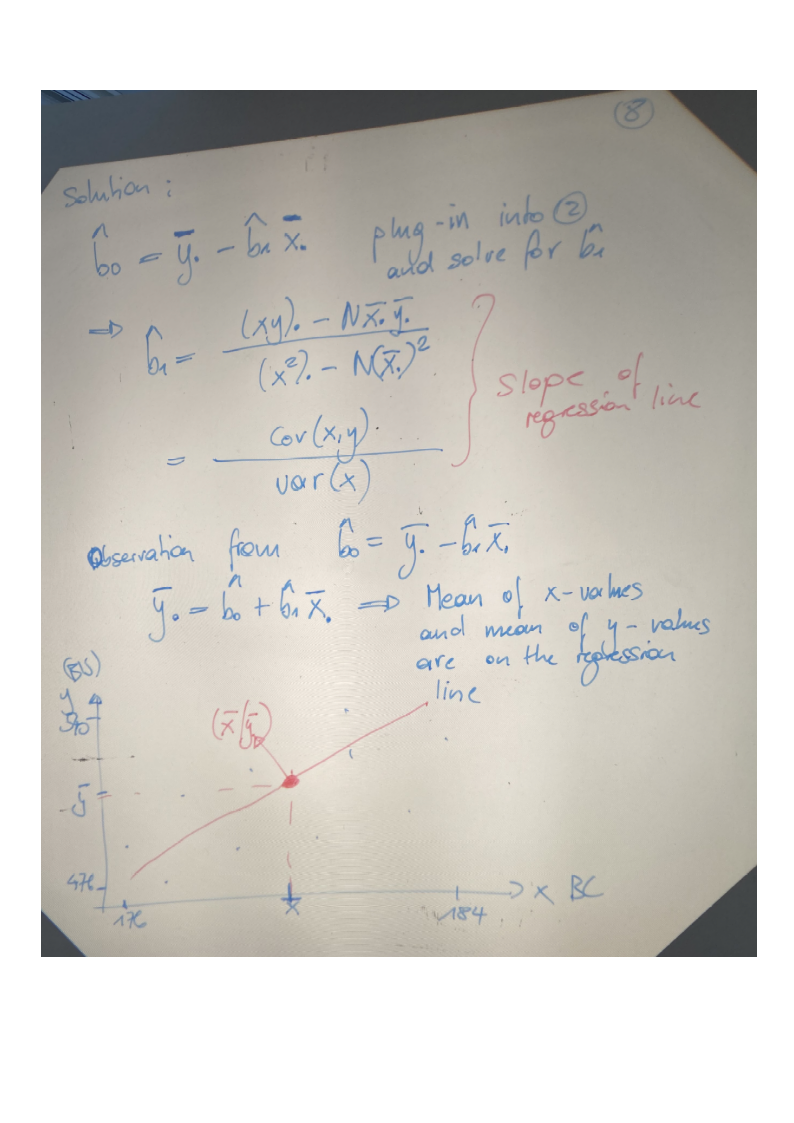 8
Solution :
b̂0 = ȳ. - b̂1 x̄. plug-in into ②
and solve for b̂1
⇒ b̂1 = (xy). - N x̄. ȳ. / (x²). - N(x̄.)²
= cov(x,y) / var(x)
slope of
regression line
Observation from b̂0 = ȳ. - b̂1 x̄.
ȳ. = b̂0 + b̂1 x̄. ⇒ Mean of x-values
and mean of y-values
are on the regression
line
y
(x̄|ȳ)
ȳ
476
176
x̄
184
x BC